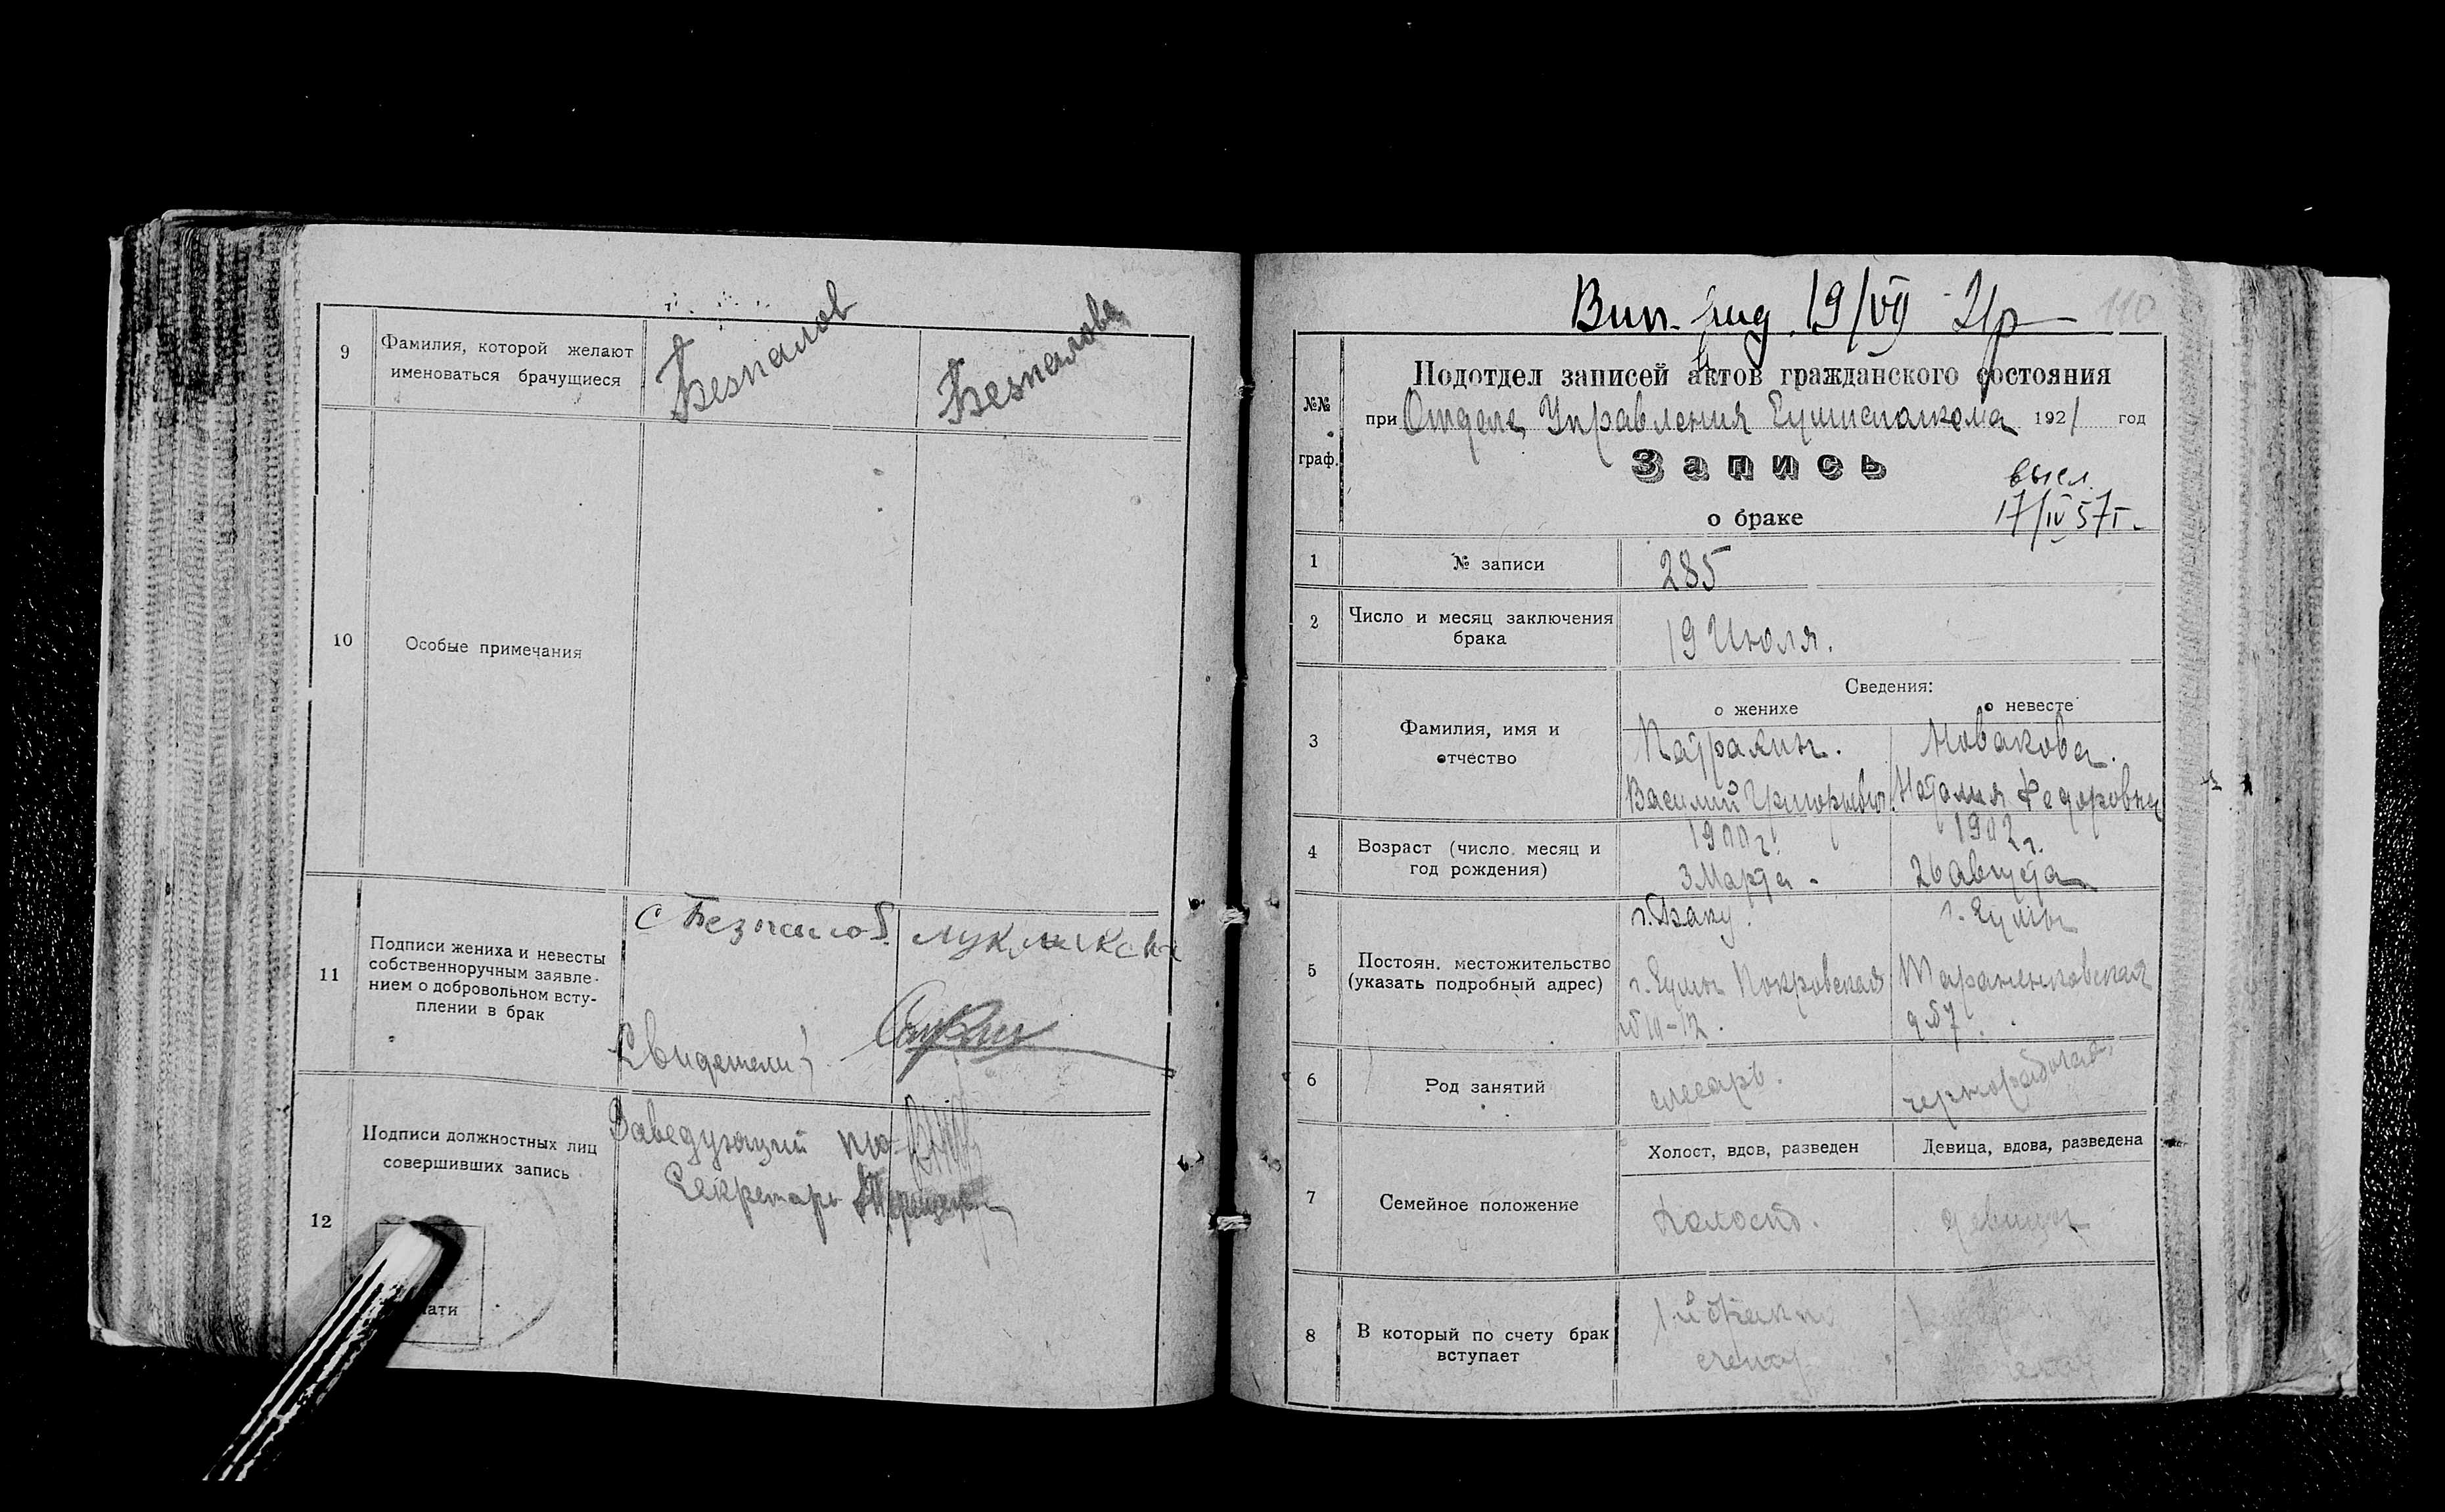 9
Фамилия, которой желают
именоваться брачущиеся
Безпалов
Безпалова
10
Особые примечания
11
Подписи жениха и невесты
собственноручным заявле-
нием о добровольном всту-
плении в брак
Безпалов
Свидетели:
12
Подписи должностных лиц
совершивших запись
Заведующий
Секретарь
ати
19/VII
110
№№
граф.
Подотдел записей актов гражданского состояния
при Отделе Управления 1921 год
Запись
о браке
высл.
17/IV 57г.
1
№ записи
285
2
Число и месяц заключения
брака
19 Июля.
3
Фамилия, имя и
отчество
Сведения:
о женихе
о невесте
Новакова.
Василий
Наталия Федоровна
4
Возраст (число, месяц и
год рождения)
1900г.
3 Марта.
1902г.
26 Августа
5
Постоян. местожительство
(указать подробный адрес)
г. Баку.
г. Сумы Покровская
№ 10-12.
г. Сумы
д №7.
6
Род занятий
слесарь.
чернорабочая
7
Семейное положение
Холост, вдов, разведен
Девица, вдова, разведена
холост.
девица
8
В который по счету брак
вступает